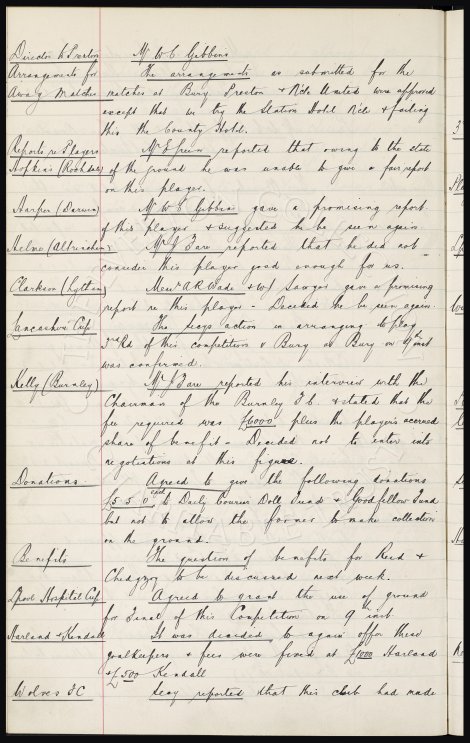 Director to Preston Mr W C Gibbins
Arrangements for The arrangements as submitted for the
Away Matches matches at Bury Preston & N'cle United were approved
except that we try the Station Hotel N'cle & failing
this the County Hotel.
Reports re Players Mr E Green reported that owing to the state
Hopkins (Rochdale) of the ground he was unable to give a fair report
on this player.
Harper (Darwen) Mr W C Gibbins gave a promising report
of this player & suggested he be seen again.
Milne (Altrincham) Mr J Fare reported that he did not
consider this player good enough for us.
Clarkson (Lytham) Messrs A R Wade & W J Sawyer gave a promising
report re this player - Decided he be seen again.
Lancashire Cup The Secys action in arranging to play
3rd Rd of this competition v Bury at Bury on 9th inst
was confirmed.
Kelly (Burnley) Mr J Fare reported his interview with the
Chairman of the Burnley F.C. & stated that the
fee required was £6000 plus the player's accrued
share of benefit - Decided not to enter into
negotiations at this figure.
Donations Agreed to give the following donations
£5 5 0 each to Daily Courier Doll Fund & Goodfellow Fund
but not to allow the former to make collection
on the ground.
Benefits The question of benefits for Reid &
Chedgzoy to be discussed next week.
L'pool Hospital Cup Agreed to grant the use of ground
for Final of this Competition on 9th inst
Harland & Kendall It was decided to again offer these
goalkeepers & fees were fixed at £1000 Harland
& £500 Kendall
Wolves F C Secy reported that this club had made